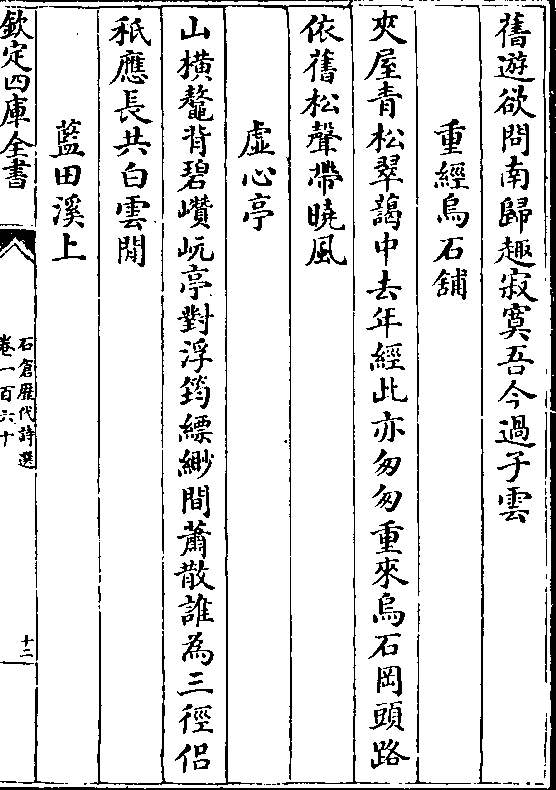 舊遊欲問南歸趣寂寞吾今過子雲
重經烏石舖
夾屋青松翠藹中去年經此亦匆匆重來烏石岡頭路
依舊松聲帶曉風
虛心亭
山橫鼇背碧巑岏亭對浮筠縹緲間蕭散誰為三徑侣
秖應長共白雲閒
藍田溪上
欽定四庫全書
石倉歷代詩選
卷一百六十
十二